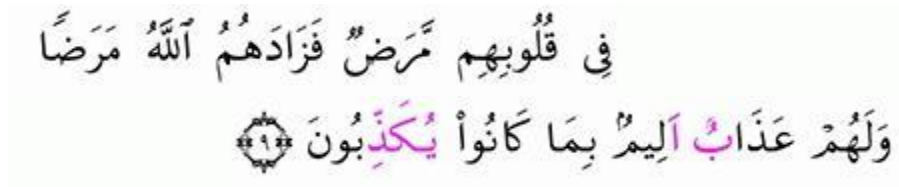 فِى قُلُوبِهِم مَّرَضٌ فَزَادَهُمُ ٱللَّهُ مَرَضًا
وَلَهُمْ عَذَابٌ اَلِيمٌۢ بِمَا كَانُوا۟ يُكَذِّبُونَ ۝٩